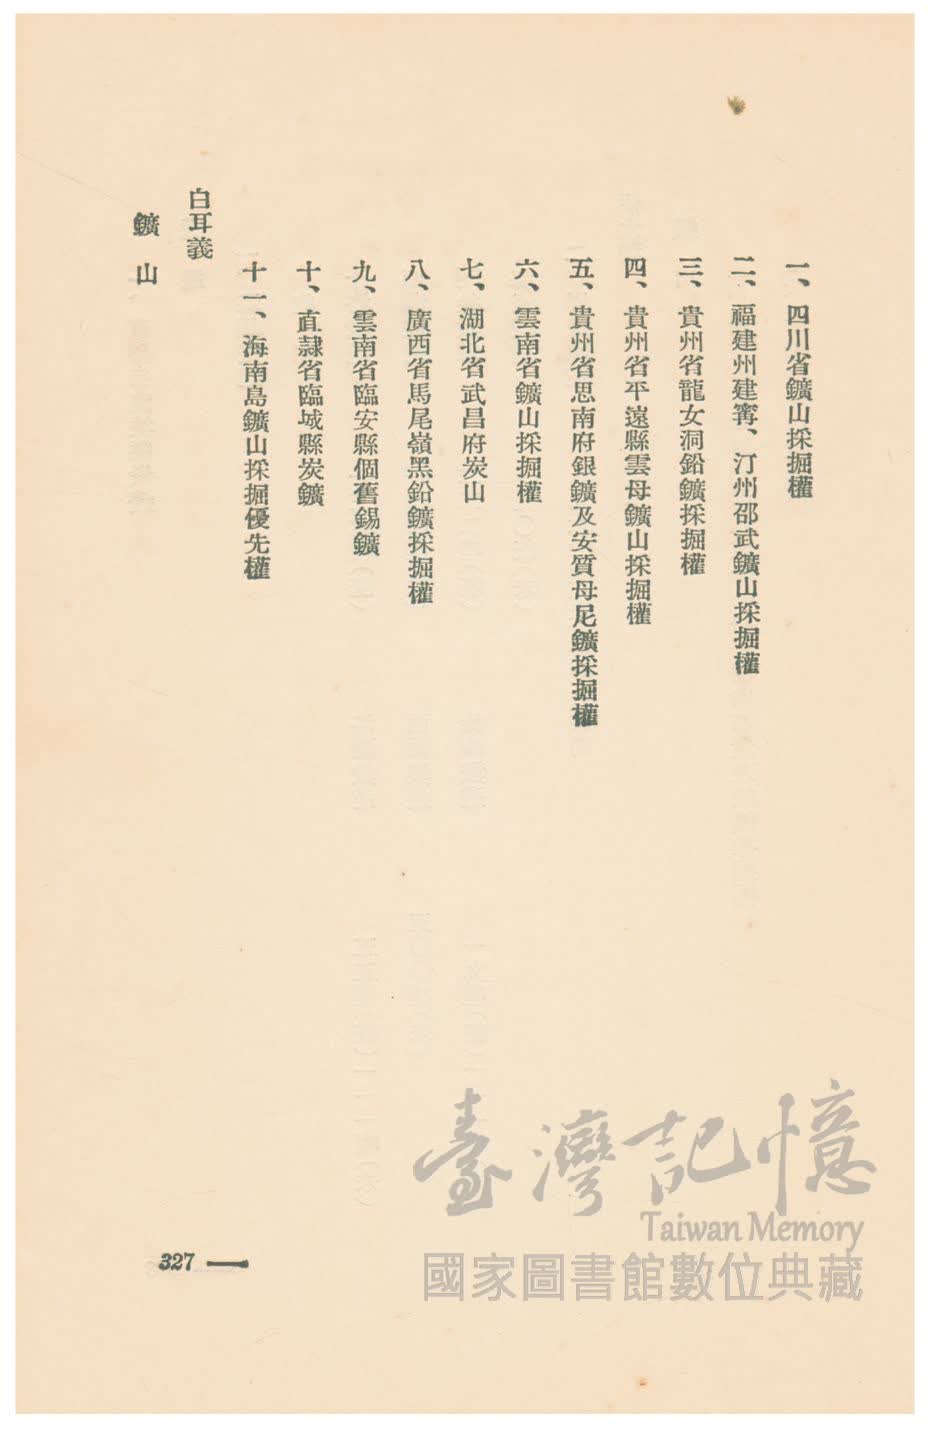 一、四川省鑛山採掘權
二、福建州建寗、汀州邵武鑛山採掘權
三、貴州省龍女洞鉛鑛採掘權
四、貴州省平遠縣雲母鑛山採掘權
五、貴州省思南府銀鑛及安質母尼鑛採掘權
六、雲南省鑛山採掘權
七、湖北省武昌府炭山
八、廣西省馬尾嶺黑鉛鑛採掘權
九、雲南省臨安縣個舊錫鑛
十、直隷省臨城縣炭鑛
十一、海南島鑛山採掘優先權
白耳義
鑛山
327
臺灣記憶
Taiwan Memory
國家圖書館數位典藏